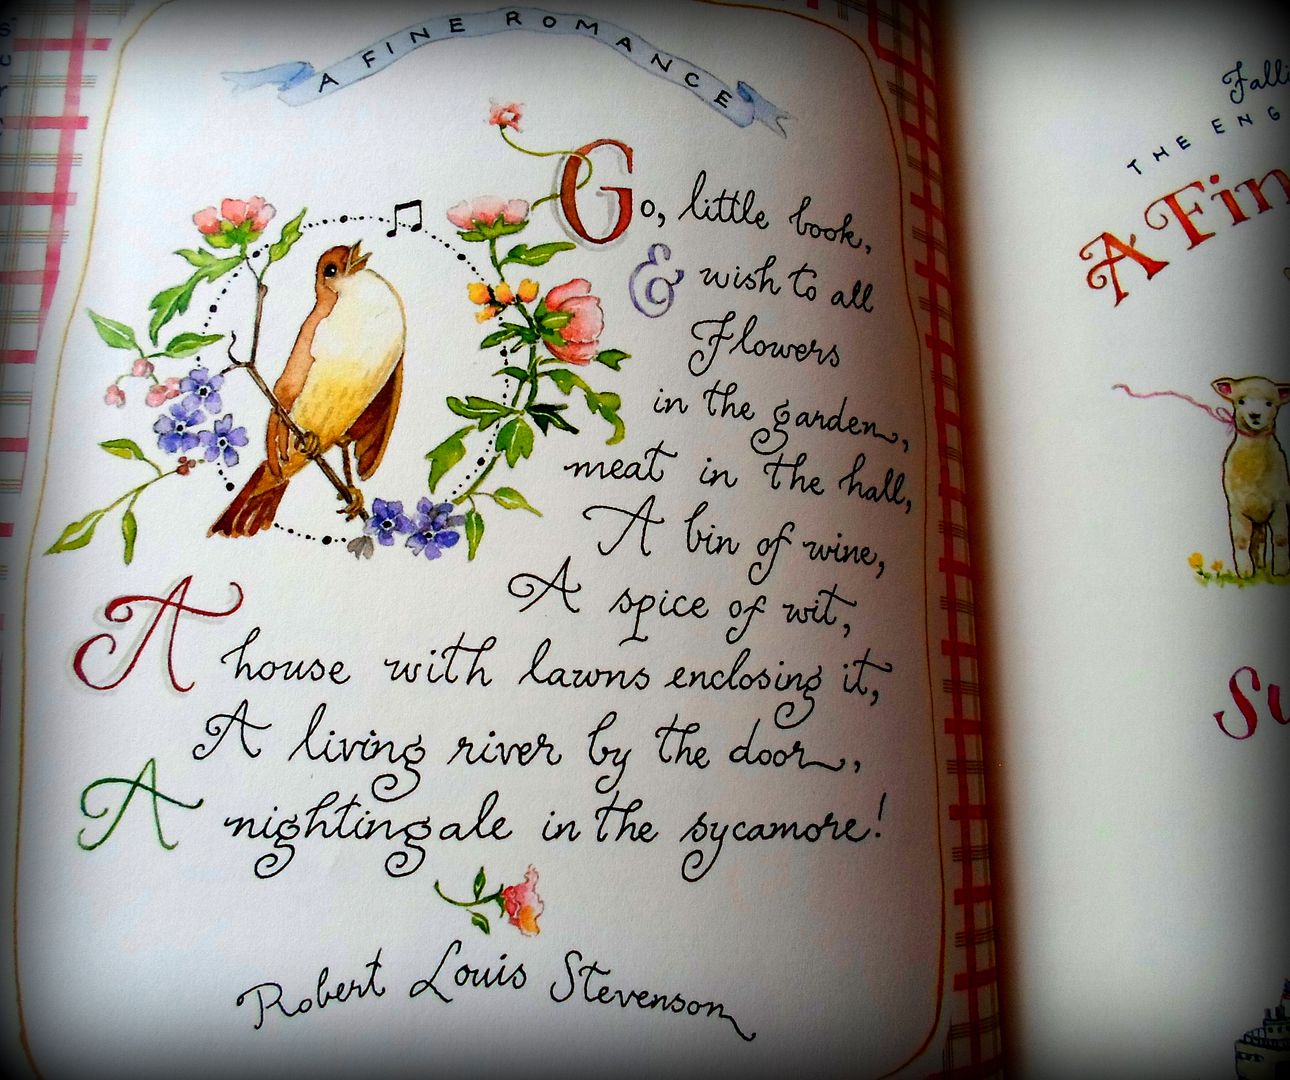 A FINE ROMANCE
Go, little book,
& wish to all
Flowers
in the garden,
meat in the hall,
A bin of wine,
A spice of wit,
A house with lawns enclosing it,
A living river by the door,
A nightingale in the sycamore!
Robert Louis Stevenson
THE
A